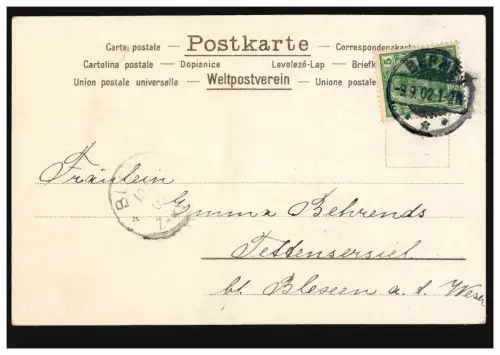 Carte postale — Postkarte — Correspondenzkarte
Cartolina postale — Dopisnice Levelező-Lap — Briefk
Union postale universelle — Weltpostverein — Unione postale
5
BERNE
-9.9.02.1-2N
* * *
Fräulein
Emma Behrends
Tettensersiel
bl. Blexen a. d. Weser